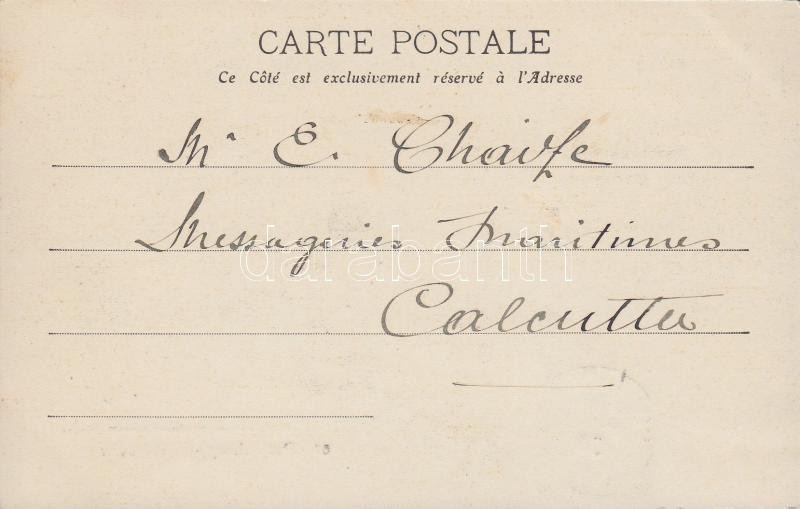 CARTE POSTALE
Ce Côté est exclusivement réservé à l'Adresse
Mr E.
Messageries Maritimes
darabanth
Calcutta